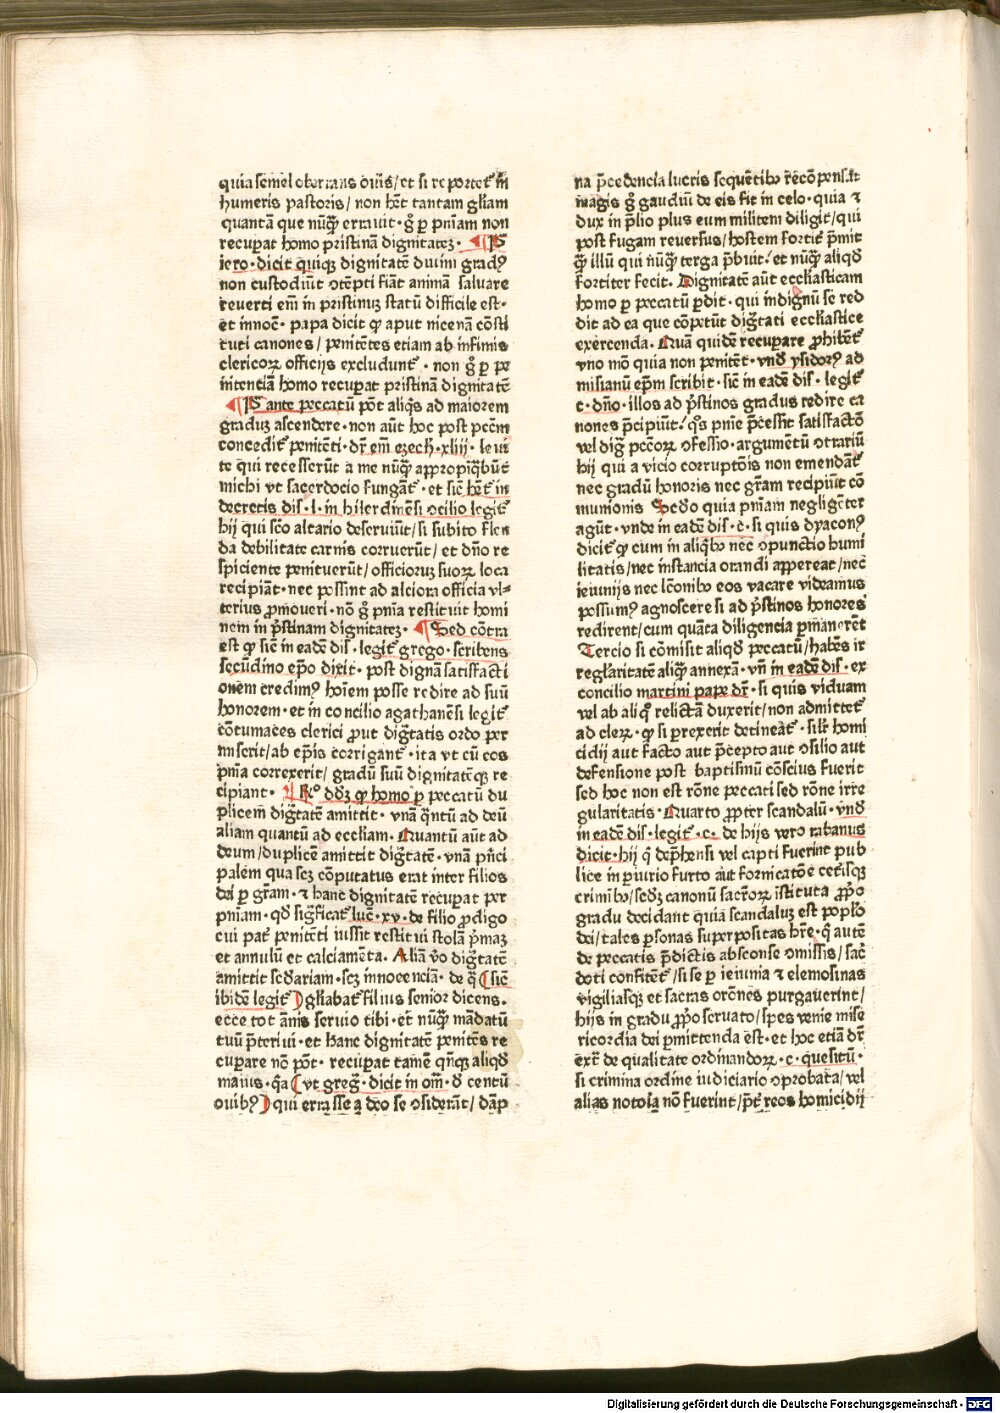 quia semel oberrans ouis/et si reportet᷑ in
humeris pastoris/non hēt tantam gl̄iam
quantā que nūq̄ꝫ errauit·g̊ ꝑ pn̄iam non
recuꝑat homo pristinā dignitateꝫ· ¶ P̄
iero·dicit quicūqꝫ dignitatē diuini gradꝰ
non custodiūt ↄtēpti fiāt animā saluare
reuerti em̄ in pristinuꝫ statū difficile est·
et innoc̄·papa dicit ꝙ aput nicenā cōsti
tuti canones/penitētes etiam ab infimis
clericoꝝ officijs excludunt᷑·non g̊ ꝑ pe
nitentiā homo recuꝑat pristinā dignitatē
¶ P̄ ante peccatū pōt aliq̄s ad maiorem
graduꝫ ascendere·non aūt hoc post pcc̄m
concedit᷑ penitēti·dr̄ em̄ ezech·xliij·leui
te qui recesserūt a me nūq̄ꝫ appropīq̄būt
michi vt sacerdocio fungāt᷑·et sic̄ hēt᷑ in
decretis dis·l·in hilerdinēsi ↄcilio legit᷑
hij qui sc̄o altario deseruiūt/si subito flen
da debilitate carnis corruerūt/et dn̄o re
spiciente penituerūt/officioruꝫ suoꝝ loca
recipiāt·nec possint ad alciora officia vl⸗
terius ꝓmoueri·nō g̊ pn̄ia restituit homi
nem in pꝰstinam dignitateꝫ· ¶ Sed cōtra
est ꝙ sic̄ in eadē dis·legit᷑ grego·scribens
secūdino ep̄o dixit·post dignā satisfacti
onem credimꝰ hoīem posse redire ad suū
honorem·et in concilio agathanēsi legit᷑
cōtumaces clerici ꝓut diḡtatis ordo per
miserit/ab ep̄is corrigant᷑·ita vt cū eos
pn̄ia correxerit/gradū suū dignitatēqꝫ re
cipiant· ¶ Rͦ dd̄ꝫ ꝙ homo ꝑ peccatū du
plicem diḡtatē amittit·vnā q̄ntū ad deū
aliam quantū ad eccl̄iam·Quantū aūt ad
deum/duplicē amittit diḡtatē·vnā pn̄ci
palem qua scꝫ cōputatus erat inter filios
dei ꝑ gr̄am·⁊ hanc dignitatē recuꝑat per
pn̄iam·qd̄ siḡficat᷑ luc̄·xv·de filio ꝓdigo
cui pat᷑ penitēti iussit restitui stolā pꝰmaꝫ
et annulū et calciamēta·Aliā v̊o diḡtatē
amittit scd̄ariam·scꝫ innocenciā·de q̄ (sic̄
ibidē legit᷑) gl̄iabat᷑ filius senior dicens·
ecce tot annis seruio tibi·et nūq̄ꝫ mādatū
tuū p̄teriui·et hanc dignitatē penitēs re
cuꝑare nō pōt·recuꝑat tamē qn̄qꝫ aliqd̄
maius·q̄a (vt greg̊·dicit in om̄·d̄ centū
ouibꝰ) qui errasse a deo se ↄsiderāt/dāp
na p̄cedencia lucris sequētibꝰ recōpensāt
magis g̊ gaudiū de eis fit in celo·quia ⁊
dux in p̄lio plus eum militem diligit/qui
post fugam reuersus/hostem fortit᷑ p̄mit
q̄ꝫ illū qui nūq̄ꝫ terga p̄buit/et nūq̄ꝫ aliqd̄
fortiter fecit.Dignitatē aūt eccl̄iasticam
homo ꝑ peccatū ꝑdit·qui indignū se red
dit ad ea que cōpetūt diḡtati eccl̄iastice
exercenda.Quā quidē recuperare ꝓhibet᷑
vno mō quia non penitet·vnd̄ ysidorꝰ ad
misianū ep̄m scribit·sic̄ in eadē dis·legit᷑
c·dn̄o·illos ad pꝰstinos gradus redire ca
nones p̄cipiūt/qͦs pn̄ie p̄cessit satisfactō
vel diḡ pcc̄oꝝ ↄfessio·argumētū ↄtrariū
hij qui a vicio corruptōis non emendāt᷑
nec gradū honoris nec gr̄am recipiūt cō
munionis Scd̄o quia pn̄iam negligēter
agūt·vnde in eadē dis·c·si quis dyaconꝰ
dicit᷑ ꝙ cum in aliq̄bꝰ nec ↄpunctio humi
litatis/nec instancia orandi appereat/nec
ieiunijs nec lc̄onibꝰ eos vacare videamus
possumꝰ agnoscere si ad pꝰstinos honores
redirent/cum quāta diligencia ꝑmanerēt
Tercio si cōmisit aliqd̄ peccatū/habēs ir
reg̃laritatē aliq̄ꝫ annexā·vn̄ in eadē dis·ex
concilio martini pape dr̄·si quis viduam
vel ab aliqͦ relictā duxerit/non admittet᷑
ad cleꝝ·ꝙ si ꝑrexerit detineāt᷑·sil᷑r homi
cidij aut facto aut p̄cepto aut ↄsilio aut
defensione post baptismū cōscius fuerit
sed hoc non est rōne peccati sed rōne irre
gularitatis·Quarto ꝓpter scandalū·vnd̄
in eadē dis·legit᷑·c·de hijs vero rabanus
dicit·hij q̄ dep̄hensi vel capti fuerint pub
lice in ꝑiurio furto aut fornicatōe cet᷑isqꝫ
crimībꝰ/scd̄ꝫ canonū sacroꝝ īstituta ꝓpͦo
gradu decidant quia scandaluꝫ est popl̄o
dei/tales ꝑsonas superpositas hr̄e·q̄ autē
de peccatis p̄dictis absconse ↄmissis/sac̄
doti confitēt᷑/si se ꝑ ieiunia ⁊ elemosinas
vigiliasqꝫ et sacras orōnes purgauerint/
hijs in gradu ꝓpͦo seruato/spes venie mise
ricordia dei ꝑmittenda est·et hoc etiā dr̄
extͣ de qualitate ordinandoꝝ·c·quesitū·
si crimina ordine iudiciario ↄprobata/vel
alias notoīa nō fuerint/p̄t᷑ reos homicidij